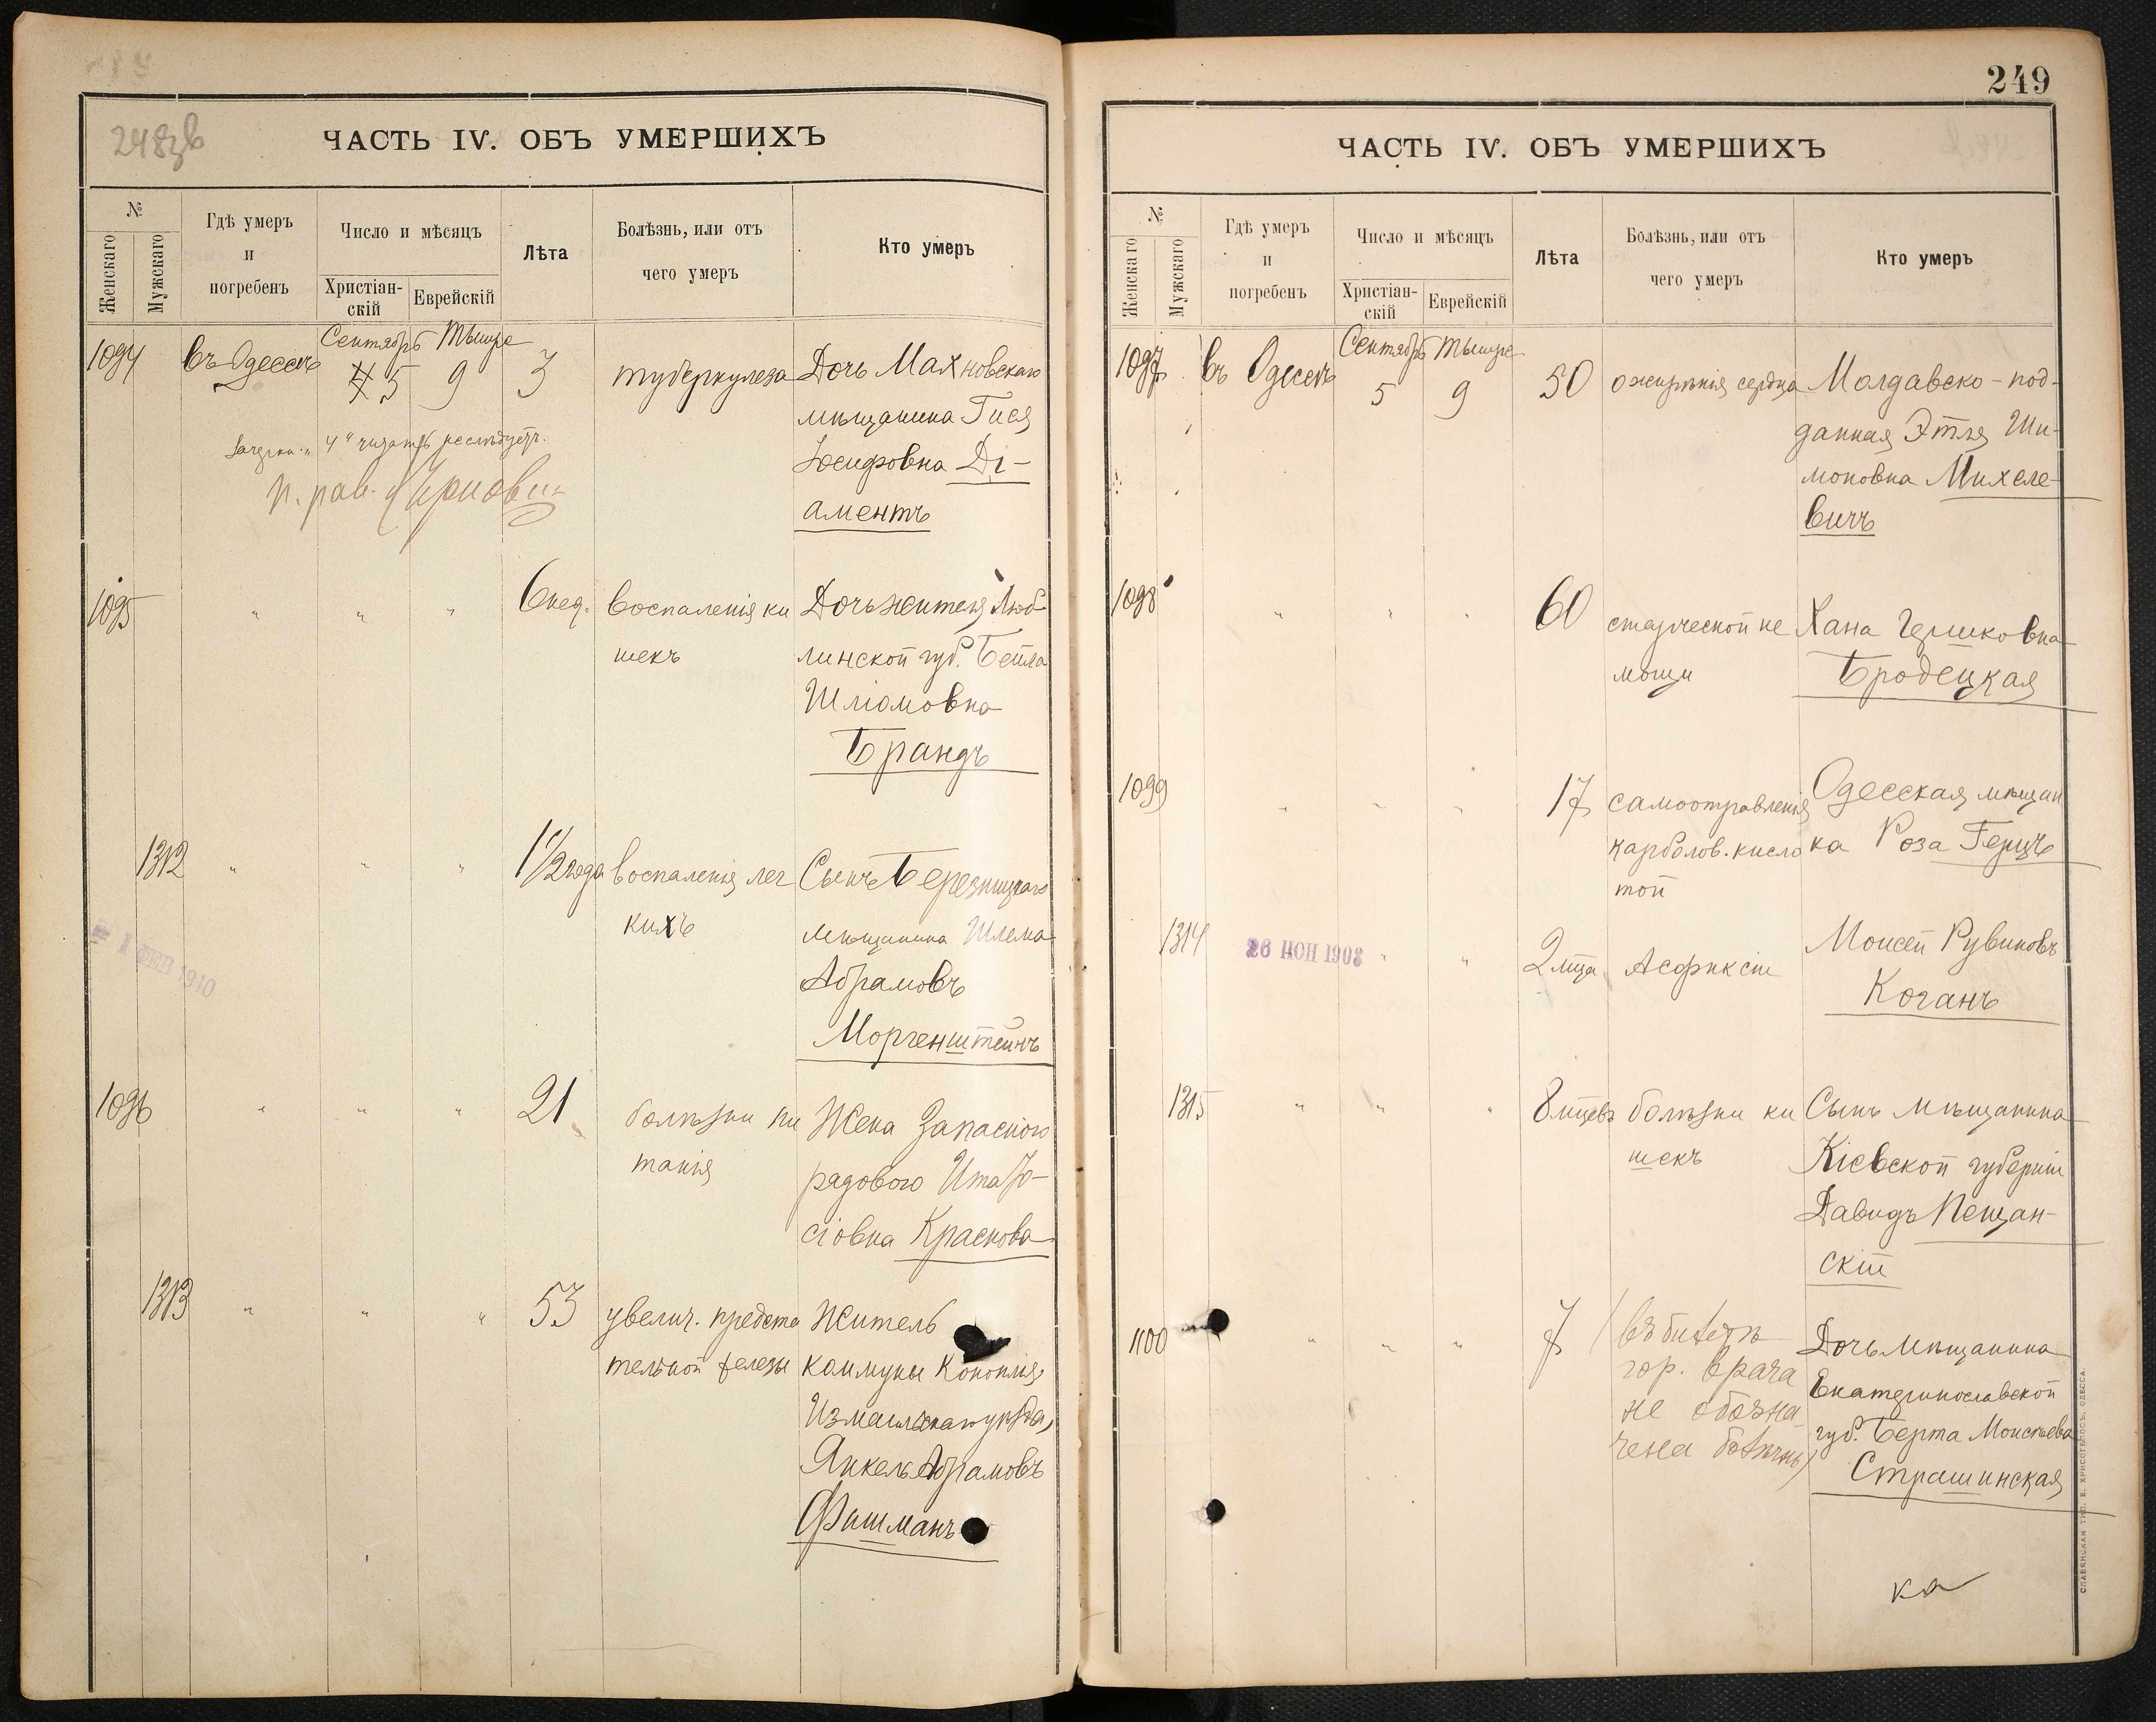 248зв
ЧАСТЬ IV. ОБЪ УМЕРШИХЪ
№
Женскаго
Мужскаго
Гдѣ умеръ
и
погребенъ
Число и мѣсяцъ
Христіан-
скій
Еврейскій
Лѣта
Болѣзнь, или отъ
чего умеръ
Кто умеръ
Сентябрь Тышре
1094 въ Одессѣ 4 5 9 3 туберкулеза Дочь Махновскаго
мѣщанина Гися
Іосифовна Ді-
аментъ
"4" читать не слѣдуетъ.
1095 " " " 6 нед. воспаленія ки
шекъ
Дочь жителя Люб-
линской губ. Бейла
Шліомовна
Брандъ
1312 " " " 1 1/2 года воспаленія лег
кихъ
Сынъ Березницкаго
мѣщанина Шлема
Абрамовъ
Моргенштейнъ
= 1 ФЕВ 1910
1096 " " " 21 болѣзни пи
танія
Жена Запаснаго
рядового Ита Іо-
сіовна Краснова
1313 " " " 53 увелич. предста
тельной железы
Житель
коммуны
Измаильскаго уѣзда,
Янкель Абрамовъ
Фишманъ
249
ЧАСТЬ IV. ОБЪ УМЕРШИХЪ
№
Женскаго
Мужскаго
Гдѣ умеръ
и
погребенъ
Число и мѣсяцъ
Христіан-
скій
Еврейскій
Лѣта
Болѣзнь, или отъ
чего умеръ
Кто умеръ
Сентябрь Тышре
1097 въ Одессѣ 5 9 50 ожирѣнія сердца Молдавско-под-
данная Этля Ши-
моновна Михеле-
вичъ
1098 " " " 60 старческой не
мощи
Хана Гершковна
Бродецкая
1099 " " " 17 самоотравленія
карболов. кисло
той
Одесская мѣщан
ка Роза Герцъ
1314 26 НОЯ 1908 " " 2 мца Асфиксіи Моисей Рувиновъ
Коганъ
1315 " " " 8 мцевъ болѣзни ки
шекъ
Сынъ мѣщанина
Кіевской губерніи
Давидъ Пещан-
скій
1100 " " " 7 (въ билетѣ
гор. врача
не обозна
чена болѣзнь)
Дочь Мѣщанина
Екатеринославской
губ. Берта Моисѣева
Страшинская
СЛАВЯНСКАЯ ТИП. Е. ХРИСОГЕЛОСЪ, ОДЕССА